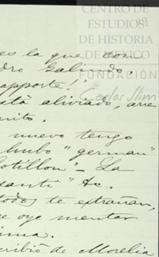 CENTRO DE
ESTUDIOS
DE HISTORIA
DE MÉXICO
FUNDACIÓN
Carlos Slim
es la que con
dro Galindo
apporte!
tá aliviado, me
nito.
nuevo tengo
hubo "german"
otillon" - La
anti" &c.
todos te extrañan,
oye mentar
cribió de Morelia